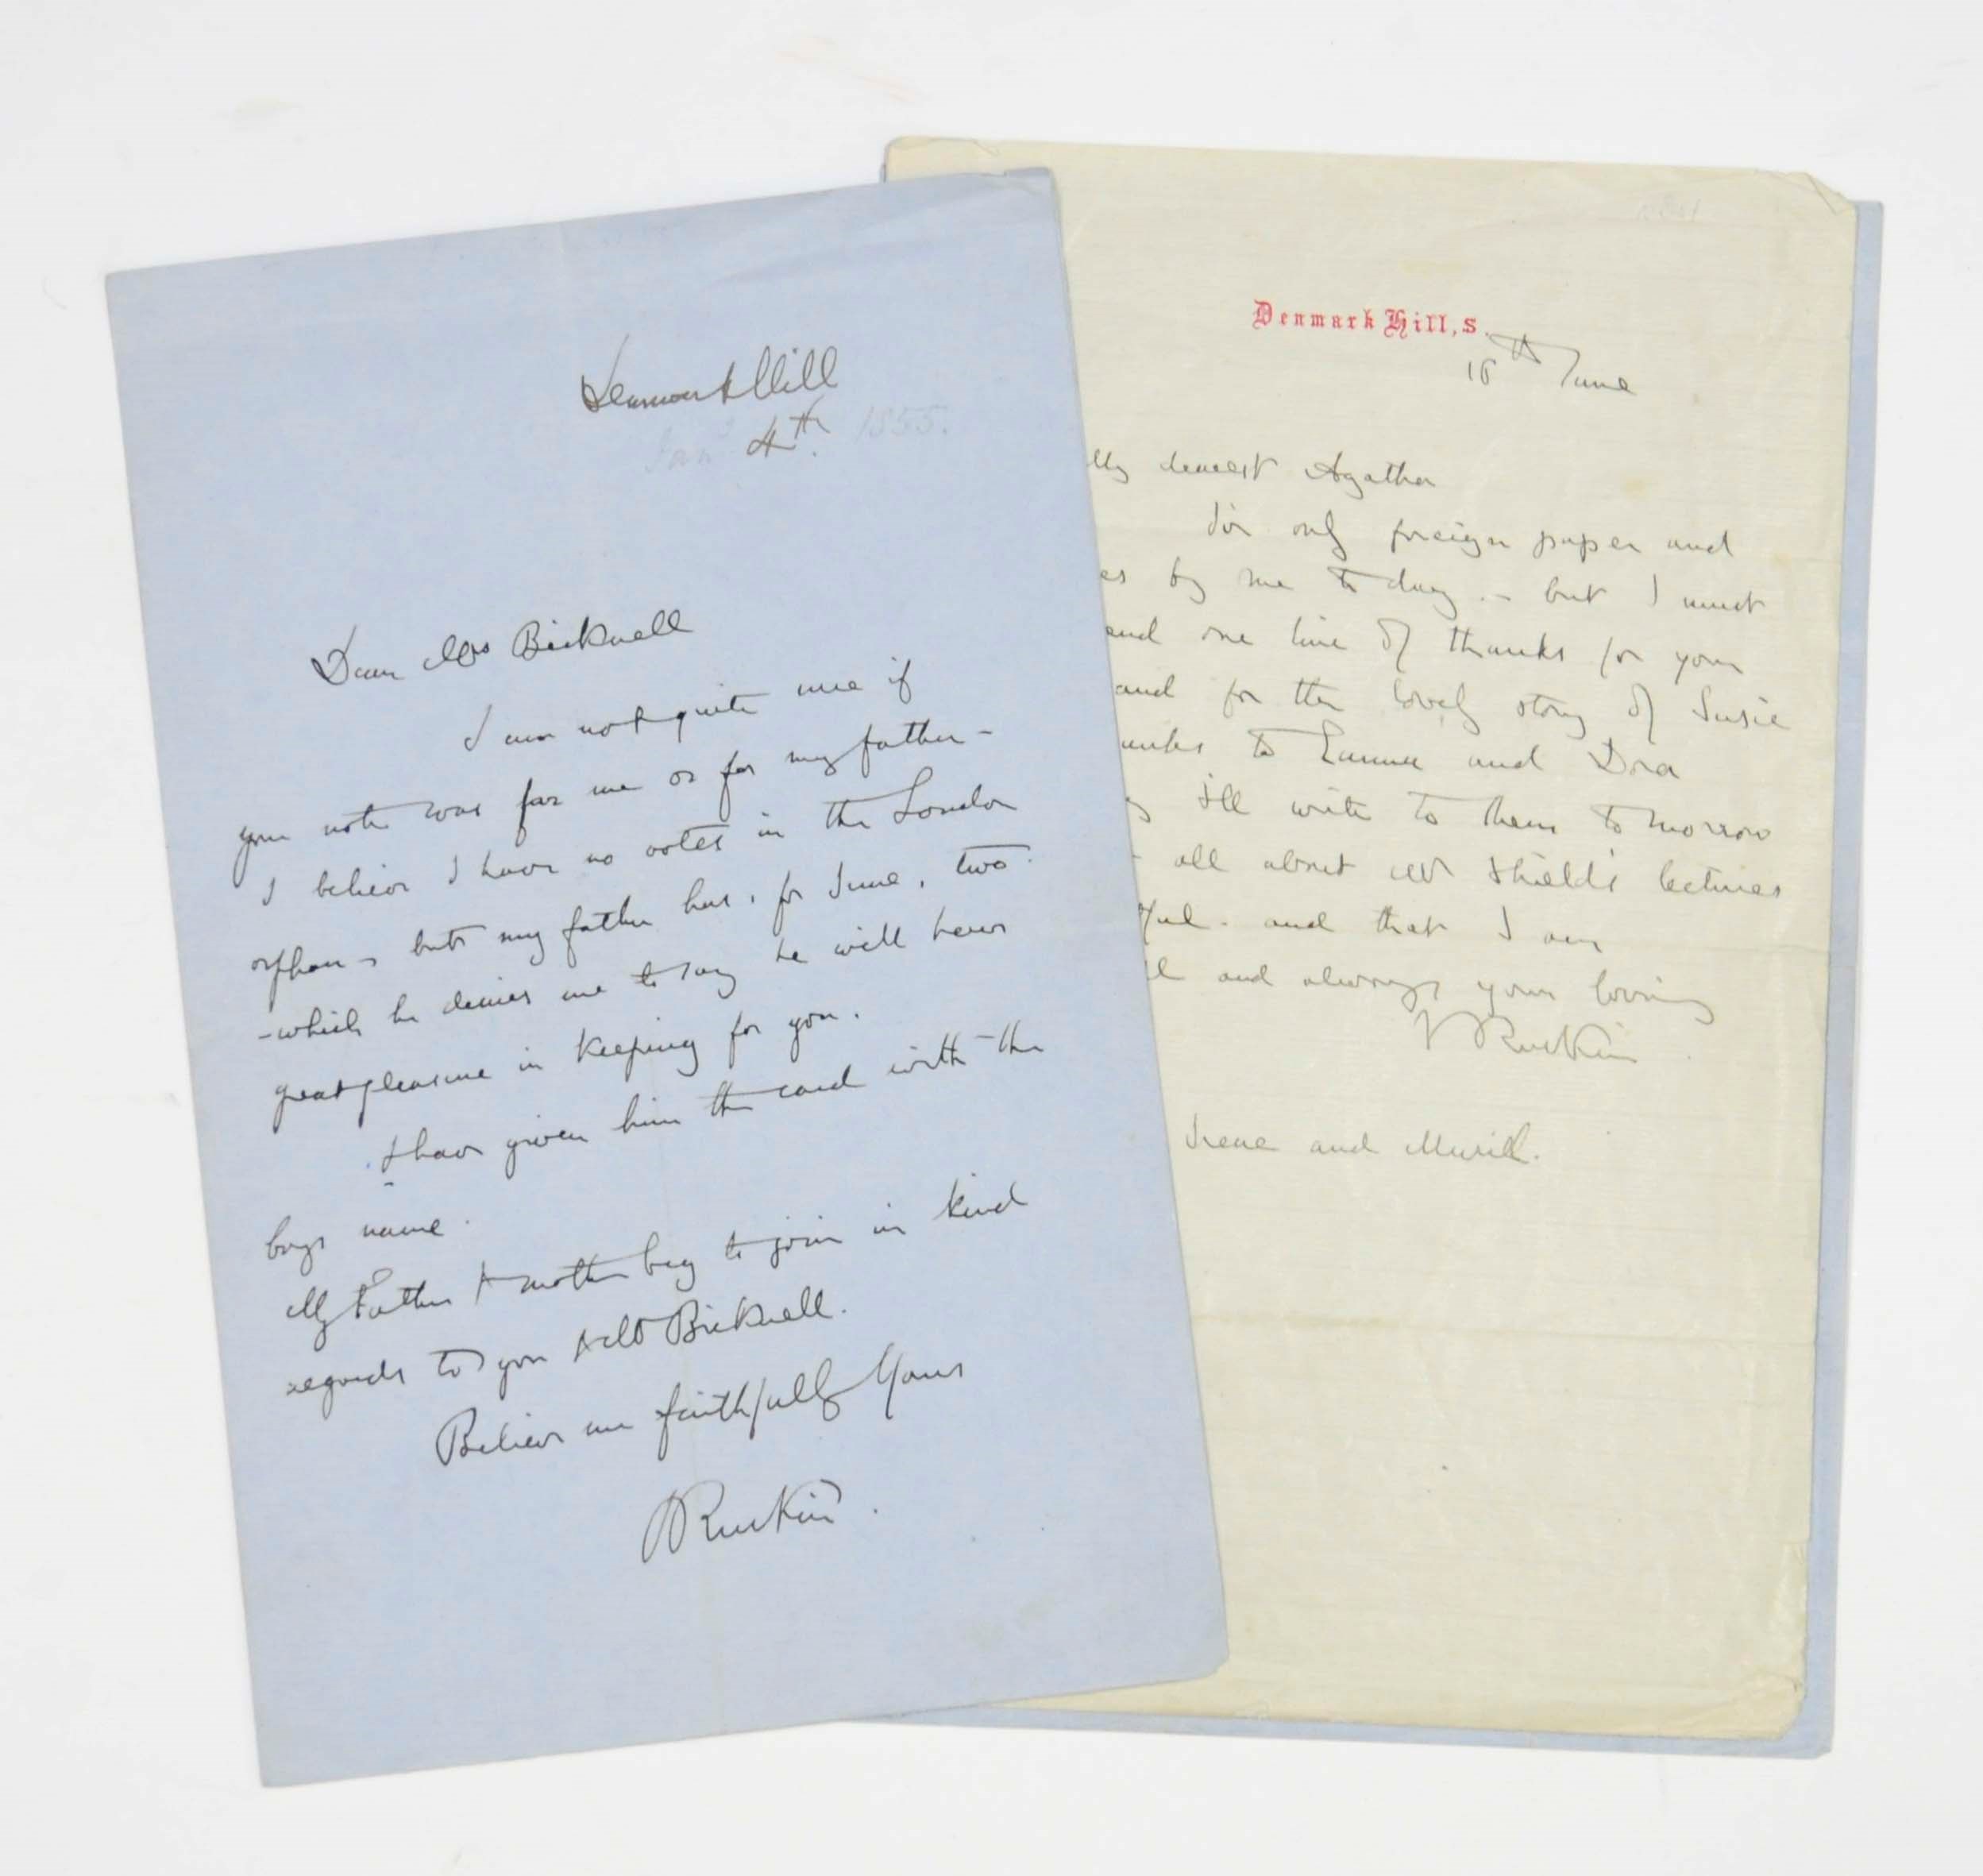 Denmark Hill
Jany 4th. 1855.
Dear Mrs Bicknell
I am not quite sure if
your note was for me or for my father -
I believe I have no votes in the London
orphan - but my father has, for June, two
- which he desires me to say he will have
great pleasure in keeping for you.
I have given him the card with the
boys name.
My Father & mother beg to join in kind
regards to you & Mr Bicknell.
Believe me faithfully Yours
JRuskin.
Denmark Hill, S.
th June
My dearest Agatha
I've only foreign paper and
es by me to day - but I must
end one line of thanks for your
and for the lovely story of Susie
anks to Emma and Dora
I'll write to them to morrow
all about Mr Shields lectures
ful - and that I am
and always your loving
J Ruskin
Irene and Muriel.